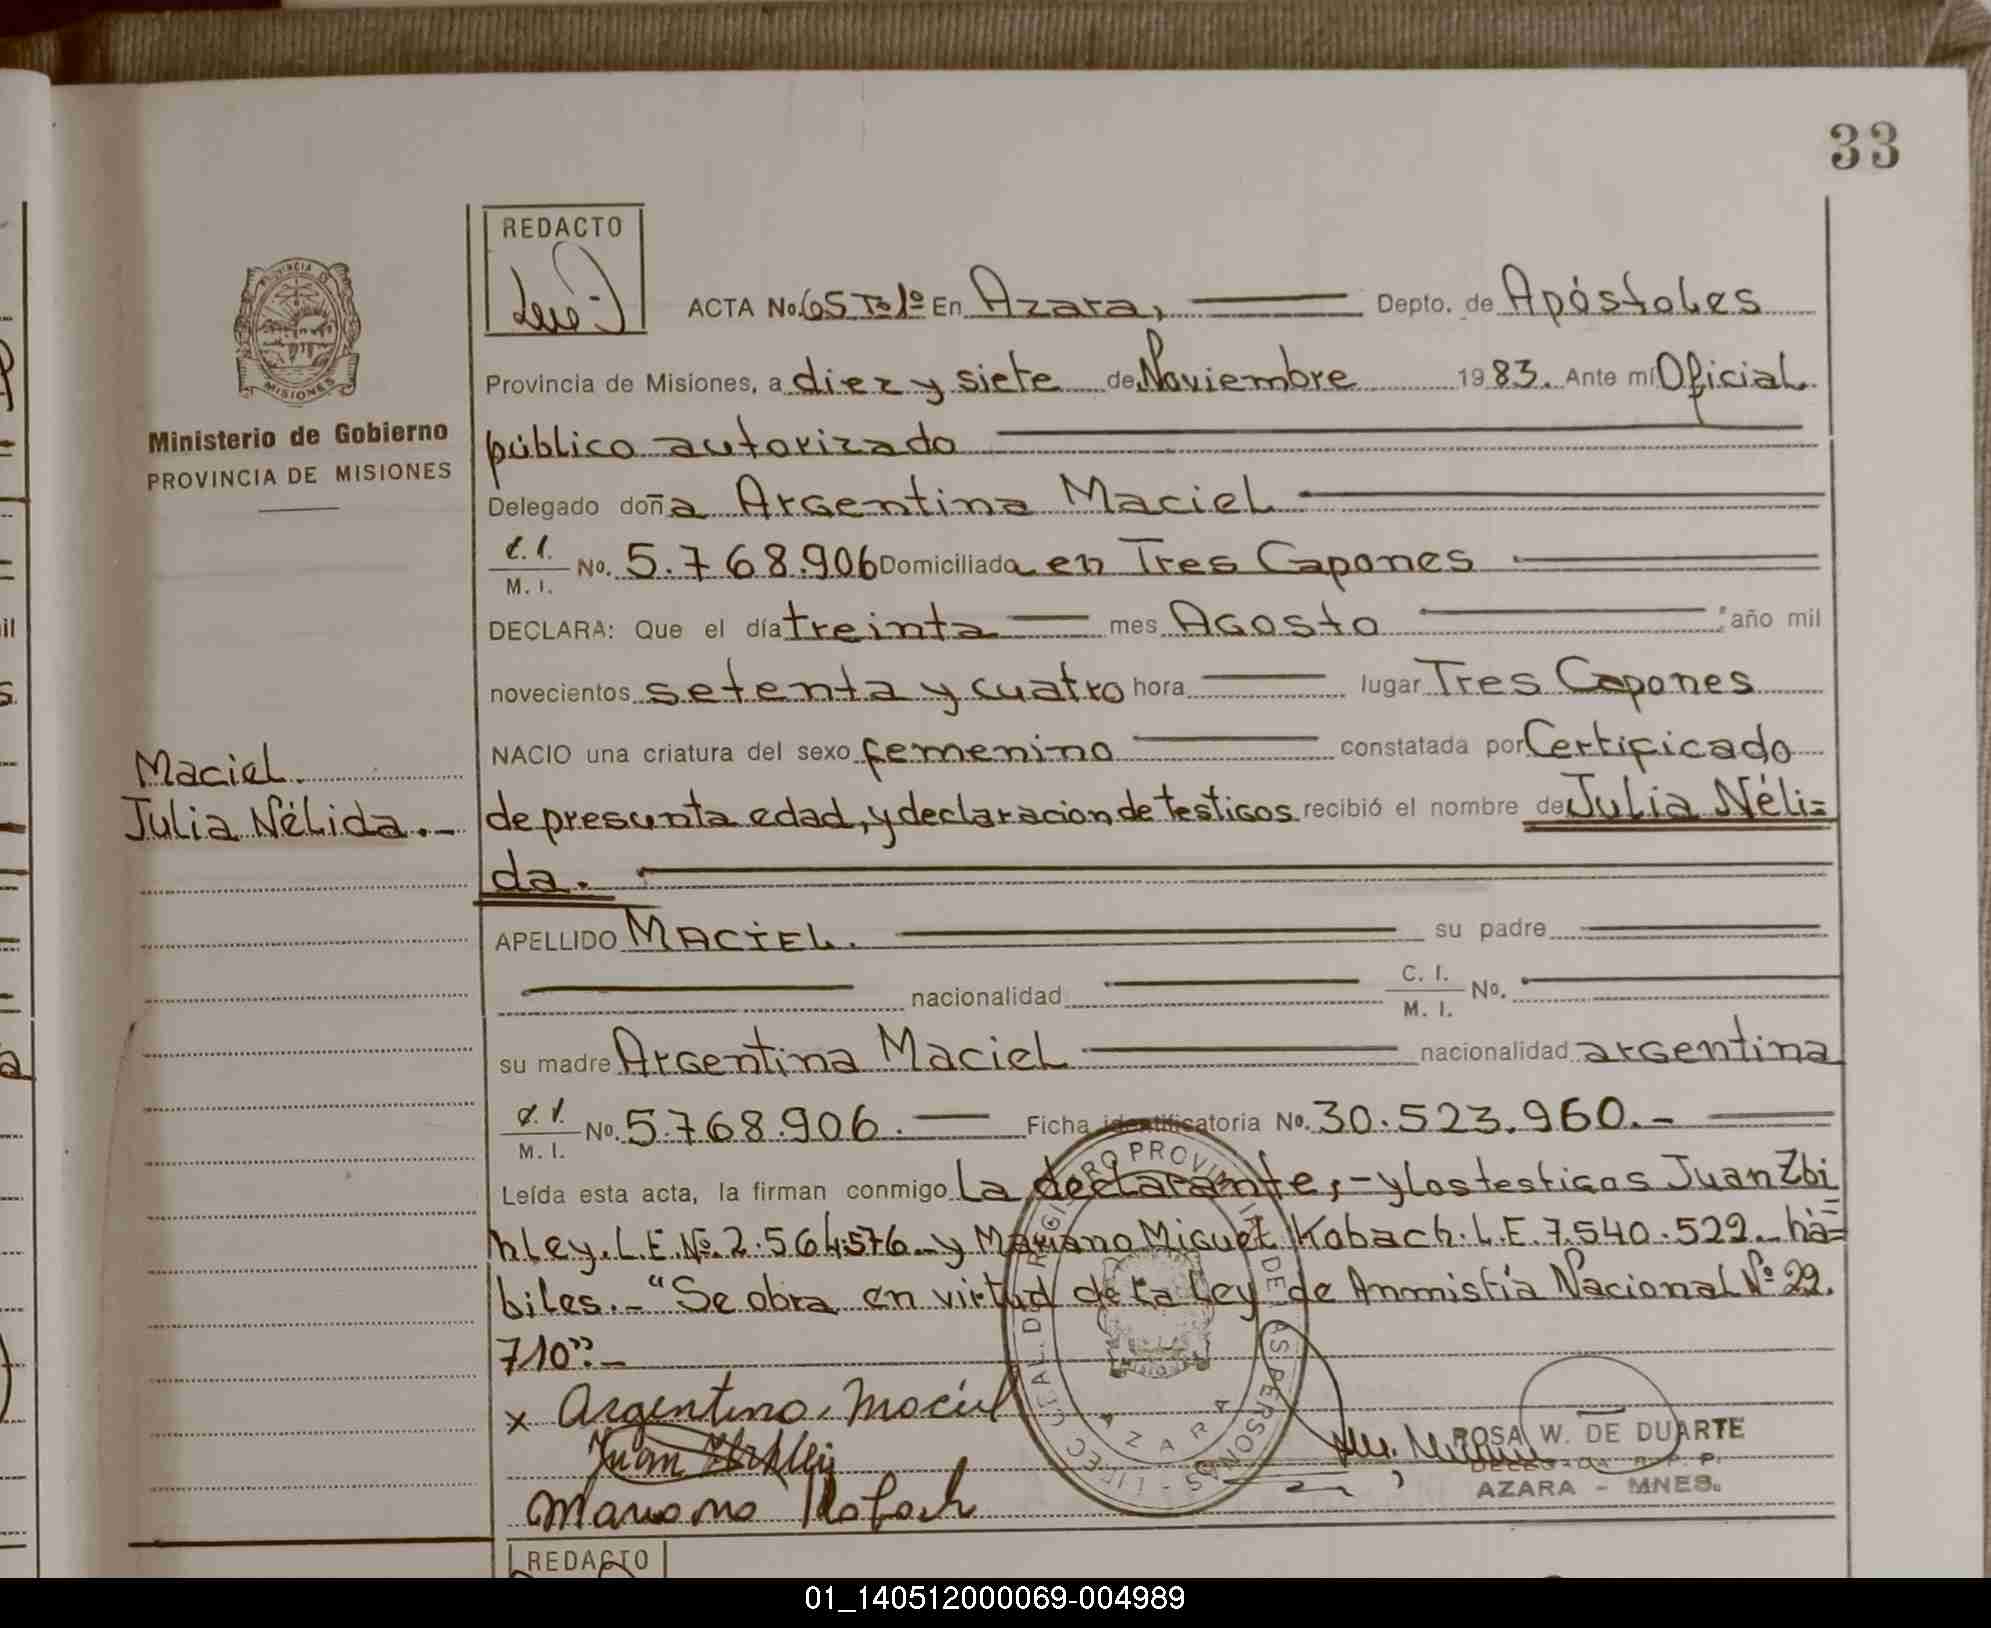 33
REDACTO
ACTA No. 65 Tº 1º En Azara, Depto. de Apóstoles
Provincia de Misiones, a diez y siete de Noviembre 1983. Ante mí Oficial
público autorizado
Delegado doña Argentina Maciel
C.I. / M. I. No. 5.768.906 Domiciliada en Tres Capones
DECLARA: Que el día treinta mes Agosto año mil
novecientos setenta y cuatro hora lugar Tres Capones
NACIO una criatura del sexo femenino constatada por Certificado
de presunta edad, y declaracion de testigos recibió el nombre de Julia Néli=
da.
APELLIDO MACIEL. su padre
nacionalidad C. I. / M. I. No.
su madre Argentina Maciel nacionalidad argentina
C.I. / M. I. No. 5.768.906. Ficha identificatoria No. 30.523.960.-
Leída esta acta, la firman conmigo la declarante,- y los testigos Juan Zbi
hley. L.E. Nº 2.564.576 y Mariano Miguel Kobach. L.E. 7.540.522 há=
biles.- "Se obra en virtud de la Ley de Anmistía Nacional Nº 22.
710".-
x Argentina Maciel
Juan
Mariano Kobach
PROVINCIA DE MISIONES
Ministerio de Gobierno
PROVINCIA DE MISIONES
Maciel.
Julia Nélida.-
REGISTRO PROVINCIAL DE LAS PERSONAS
AZARA
ROSA W. DE DUARTE
AZARA - MNES.
REDACTO
01_140512000069-004989